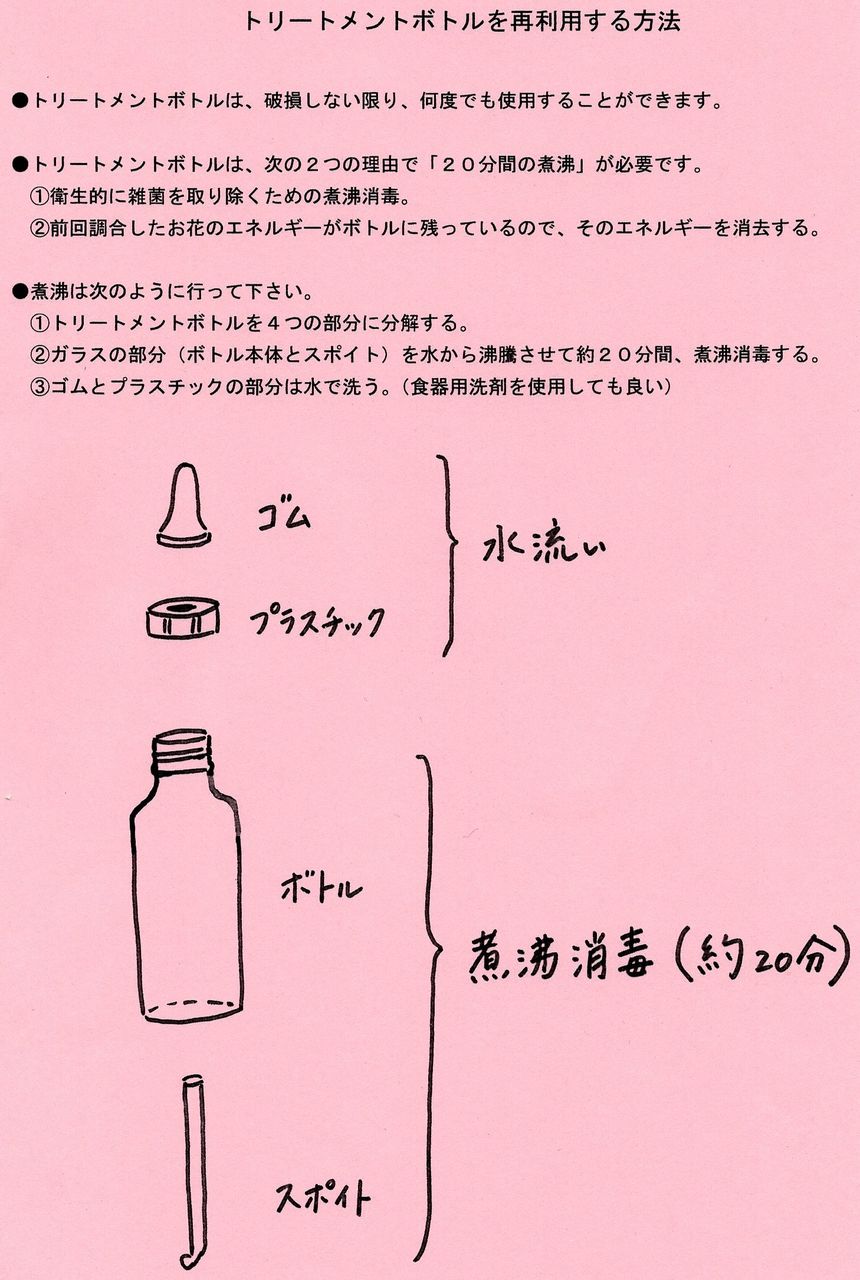 トリートメントボトルを再利用する方法
●トリートメントボトルは、破損しない限り、何度でも使用することができます。
●トリートメントボトルは、次の２つの理由で「２０分間の煮沸」が必要です。
①衛生的に雑菌を取り除くための煮沸消毒。
②前回調合したお花のエネルギーがボトルに残っているので、そのエネルギーを消去する。
●煮沸は次のように行って下さい。
①トリートメントボトルを４つの部分に分解する。
②ガラスの部分（ボトル本体とスポイト）を水から沸騰させて約２０分間、煮沸消毒する。
③ゴムとプラスチックの部分は水で洗う。（食器用洗剤を使用しても良い）
ゴム
水流い
プラスチック
ボトル
煮沸消毒（約20分）
スポイト